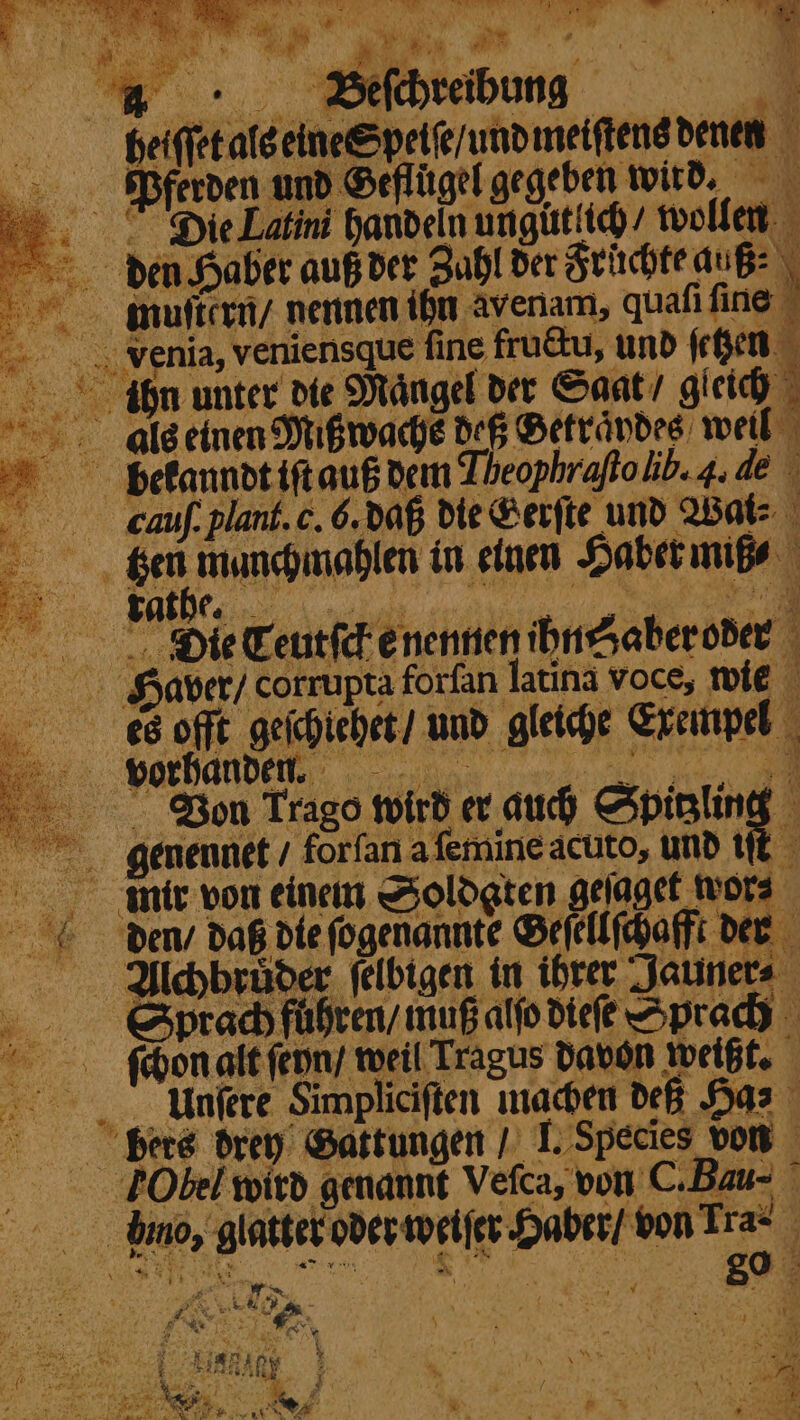 4 . Beſchreibung
heiſſet als eine Speiſe/ und meiſtens denen
Pferden und Geflügel gegeben wird.
Die Latini handeln ungütlich / wollen
den Haber auß der Zahl der Früchte auß-
muſtern/ nennen ihn avenam, quaſi ſine
venia, veniensque ſine fructu, und ſetzen
ihn unter die Mängel der Saat / gleich
als einen Mißwachs deß Geträydes weil
bekanndt iſt auß dem Theophraſto lib. 4. de
cauſ. plant. c. 6. daß die Gerſte und Wai-
tzen manchmahlen in einen Haber miß-
rathe.
Die Teutſche nennen ihn Haber oder
Haver/ corrupta forſan latina voce, wie
es offt geſchiehet / und gleiche Exempel
vorhanden.
Von Trago wird er auch Spitzling
genennet / forſan a ſemine acuto, und iſt
mir von einem Soldaten geſaget wor-
den/ daß die ſogenannte Geſellſchafft der
Alchbrüder ſelbigen in ihrer Jauner-
Sprach führen/ muß alſo dieſe Sprach
ſchon alt ſeyn/ weil Tragus davon weißt.
Unſere Simpliciſten machen deß Ha-
bers drey Gattungen / I. Species von
l'Obel wird genannt Veſca, von C. Bau-
hino, glatter oder weiſer Haber/ von Tra-
go
LIBRARY